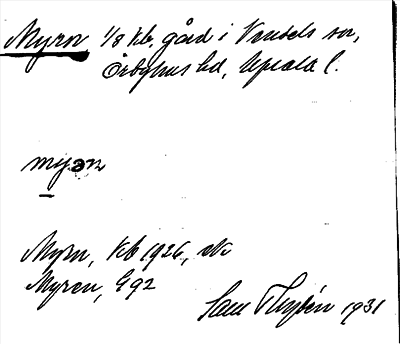 Myrn 1/8 kb. gård i Vendels sn,
Örbyhus hd, Upsala l.
myən
Myrn, Kb 1926, etc
Myren, G92
Sam Thysén 1931